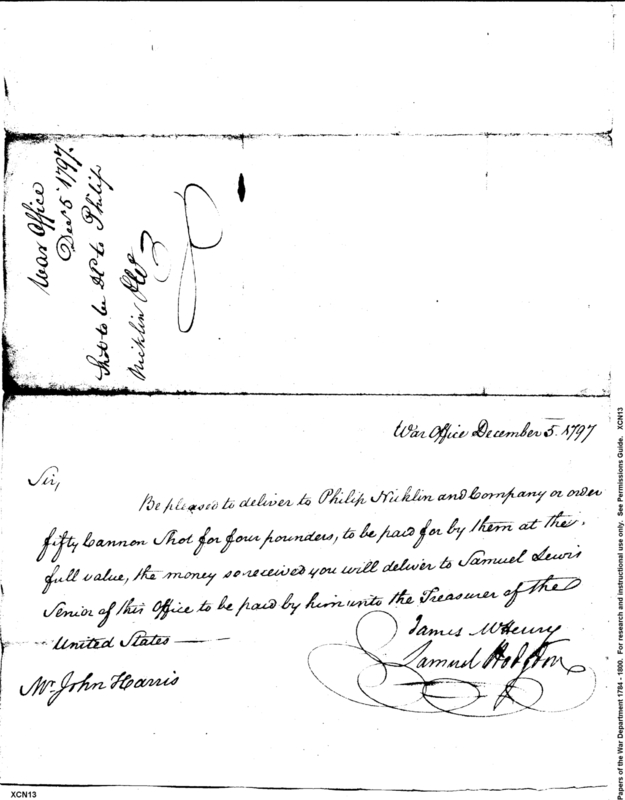 War Office
Decr 5 1797.
Shot to be Dd to Philip
Nicklin & Co
War Office December 5. 1797
Sir,
Be pleased to deliver to Philip Nicklin and Company or order
fifty Cannon Shot for four pounders, to be paid for by them at the
full value, the money so received you will deliver to Samuel Lewis
Senior of this Office to be paid by him unto the Treasurer of the
United States
James McHenry
Samuel Hodgdon
Mr. John Harris
XCN13
Papers of the War Department 1784 - 1800. For research and instructional use only. See Permissions Guide. XCN13